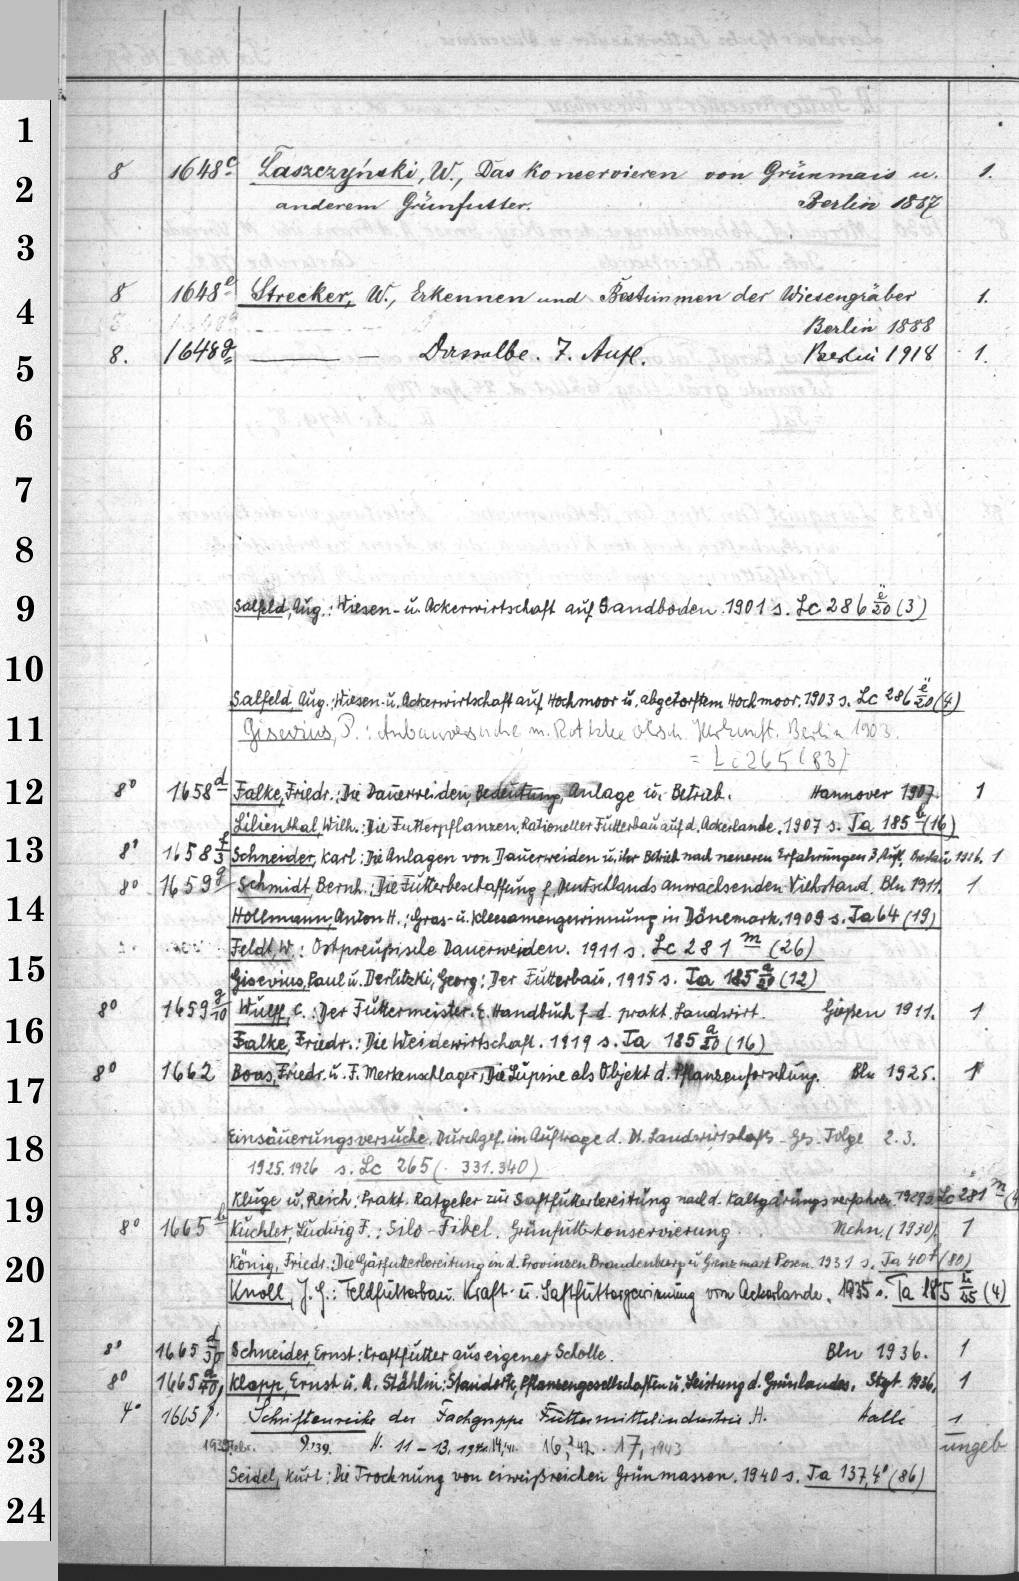 1
8 1648c Łaszczyński, W., Das Konservieren von Grünmais u. 1.
2
anderem Grünfutter. Berlin 1887
3
8 1648e Strecker, W., Erkennen und Bestimmen der Wiesengräber 1.
4
Berlin 1888
8. 1648g ——— — Dasselbe. 7. Aufl. Berlin 1918 1.
5
6
7
8
9
Salfeld, Aug.: Wiesen- u. Ackerwirtschaft auf Sandboden. 1901 s. Lc 286 ë/20 (3)
10
Salfeld, Aug.: Wiesen- u. Ackerwirtschaft auf Hochmoor u. abgetorftem Hochmoor. 1903 s. Lc 286 ë/20 (4)
11
Gisevius, P.: Anbauversuche m. Rotklee Herkunft. Berlin 1903.
= Lc 265 (83)
12
8° 1658d Falke, Friedr.: Die Dauerweiden, Bedeutung, Anlage u. Betrieb. Hannover 1907. 1
Lilienthal, Wilh.: Die Futterpflanzen, Rationeller Futterbau auf d. Ackerlande. 1907 s. Ta 185 (16)
13
8° 1658 f/3 Schneider, Karl: Die Anlagen von Dauerweiden u. ihr Betrieb nach neueren Erfahrungen 3. Aufl. Breslau 1926. 1
8° 1659g Schmidt, Bernh.: Die Futterbeschaffung f. Deutschlands anwachsenden Viehstand. Bln 1911. 1
14
Hollmann, Anton H.: Gras- u. Kleesamengewinnung in Dänemark. 1909 s. Ta 64 (19)
Feldt, W.: Ostpreußische Dauerweiden. 1911 s. Lc 281 m (26)
15
Gisevius, Paul u. Derlitzki, Georg: Der Futterbau. 1915 s. Ta 185 a/20 (12)
8° 1659 g/10 Wulff, C.: Der Futtermeister. E. Handbuch f. d. prakt. Landwirt. Gießen 1911. 1
16
Falke, Friedr.: Die Weidewirtschaft. 1919 s. Ta 185 a/20 (16)
8° 1662 Boas, Friedr. u. F. Merkenschlager, Die Lupine als Objekt d. Pflanzenforschung. Bln 1925. 1
17
18
Einsäuerungsversuche. Durchgef. im Auftrage d. Dt. Landwirtschafts-Ges. Folge 2. 3.
1925. 1926 s. Lc 265 (331. 340)
19
Kluge u. Reich: Prakt. Ratgeber zur Saftfutterbereitung nach d. Kaltgärungsverfahren. 1929 s. Lc 281 m
8° 1665b Kuchler, Ludwig F.: Silo-Fibel. Grünfutterkonservierung. Mchn. (1930). 1
20
König, Friedr.: Die Gärfutterbereitung in d. Provinzen Brandenburg u. Grenzmark Posen. 1931 s. Ta 40f (80)
Knoll, J. G.: Feldfutterbau. Kraft- u. Saftfuttergewinnung vom Ackerlande. 1935 s. Ta 185 (4)
21
8° 1665 d/30 Schneider, Ernst: Kraftfutter aus eigener Scholle. Bln 1936. 1
22
8° 1665 d/40 Klapp, Ernst u. A. Stählin: Standorte, Pflanzengesellschaften u. Leistung d. Grünlandes. Stgt. 1936. 1
4° 1665 f. Schriftenreihe der Fachgruppe Futtermittelindustrie H. Halle 1
23
H. 11 – 13, 16, 17, 1943 ungeb
Seidel, Kurt: Die Trocknung von eiweißreichen Grünmassen. 1940 s. Ta 137, 4° (86)
24